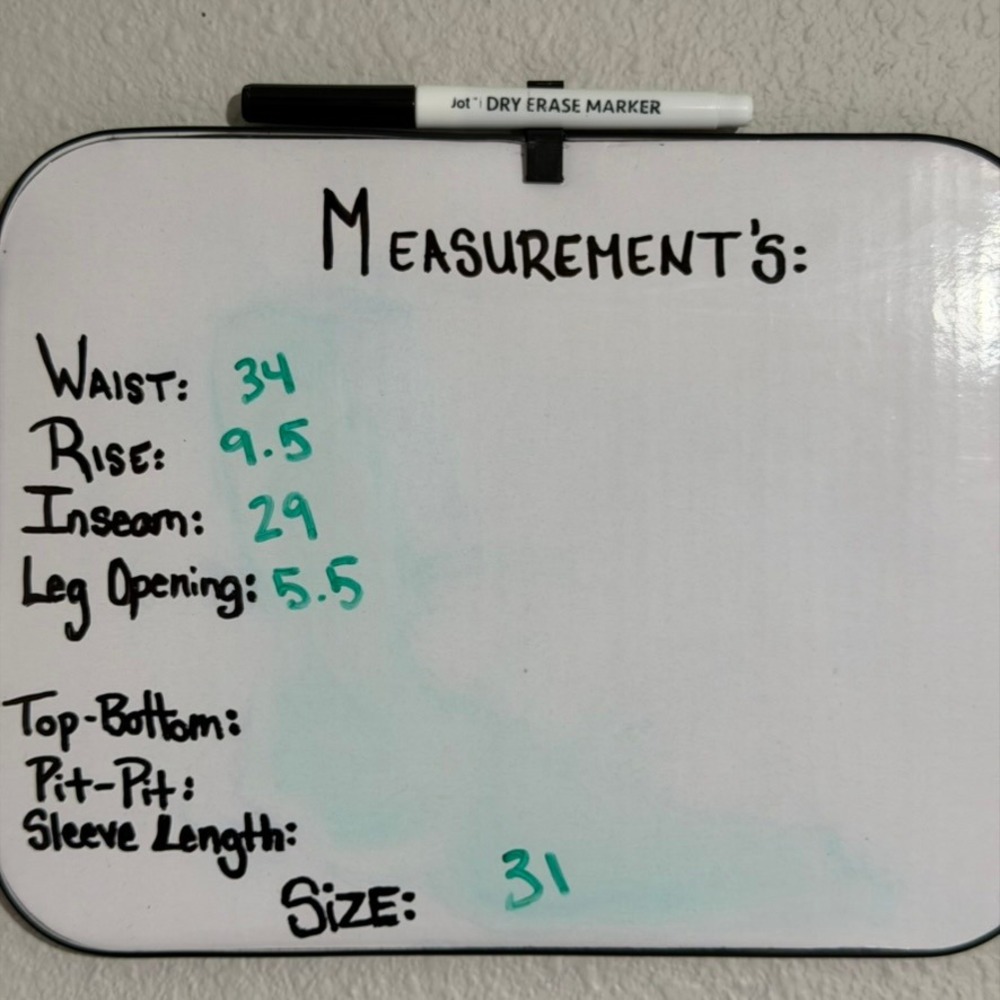 Jot™ DRY ERASE MARKER
MEASUREMENT'S:
WAIST: 34
RISE: 9.5
Inseam: 29
Leg Opening: 5.5
Top-Bottom:
Pit-Pit:
Sleeve Length:
SiZE: 31